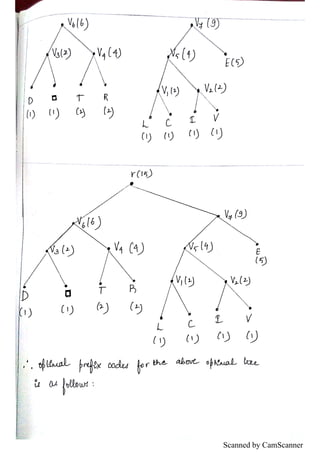 V6(6) V7(9)
V3(2) V4(4) V5(4) E(5)
V1(2) V2(2)
D □ T R
(1) (1) (2) (2)
L C I V
(1) (1) (1) (1)
r(15)
V6(6) V7(9)
V3(2) V4 (4) V5(4) E
(5)
V1(2) V2(2)
D □ T R
(1) (1) (2) (2)
L C I V
(1) (1) (1) (1)
∴ optimal prefix codes for the above optimal tree
is as follows:
Scanned by CamScanner